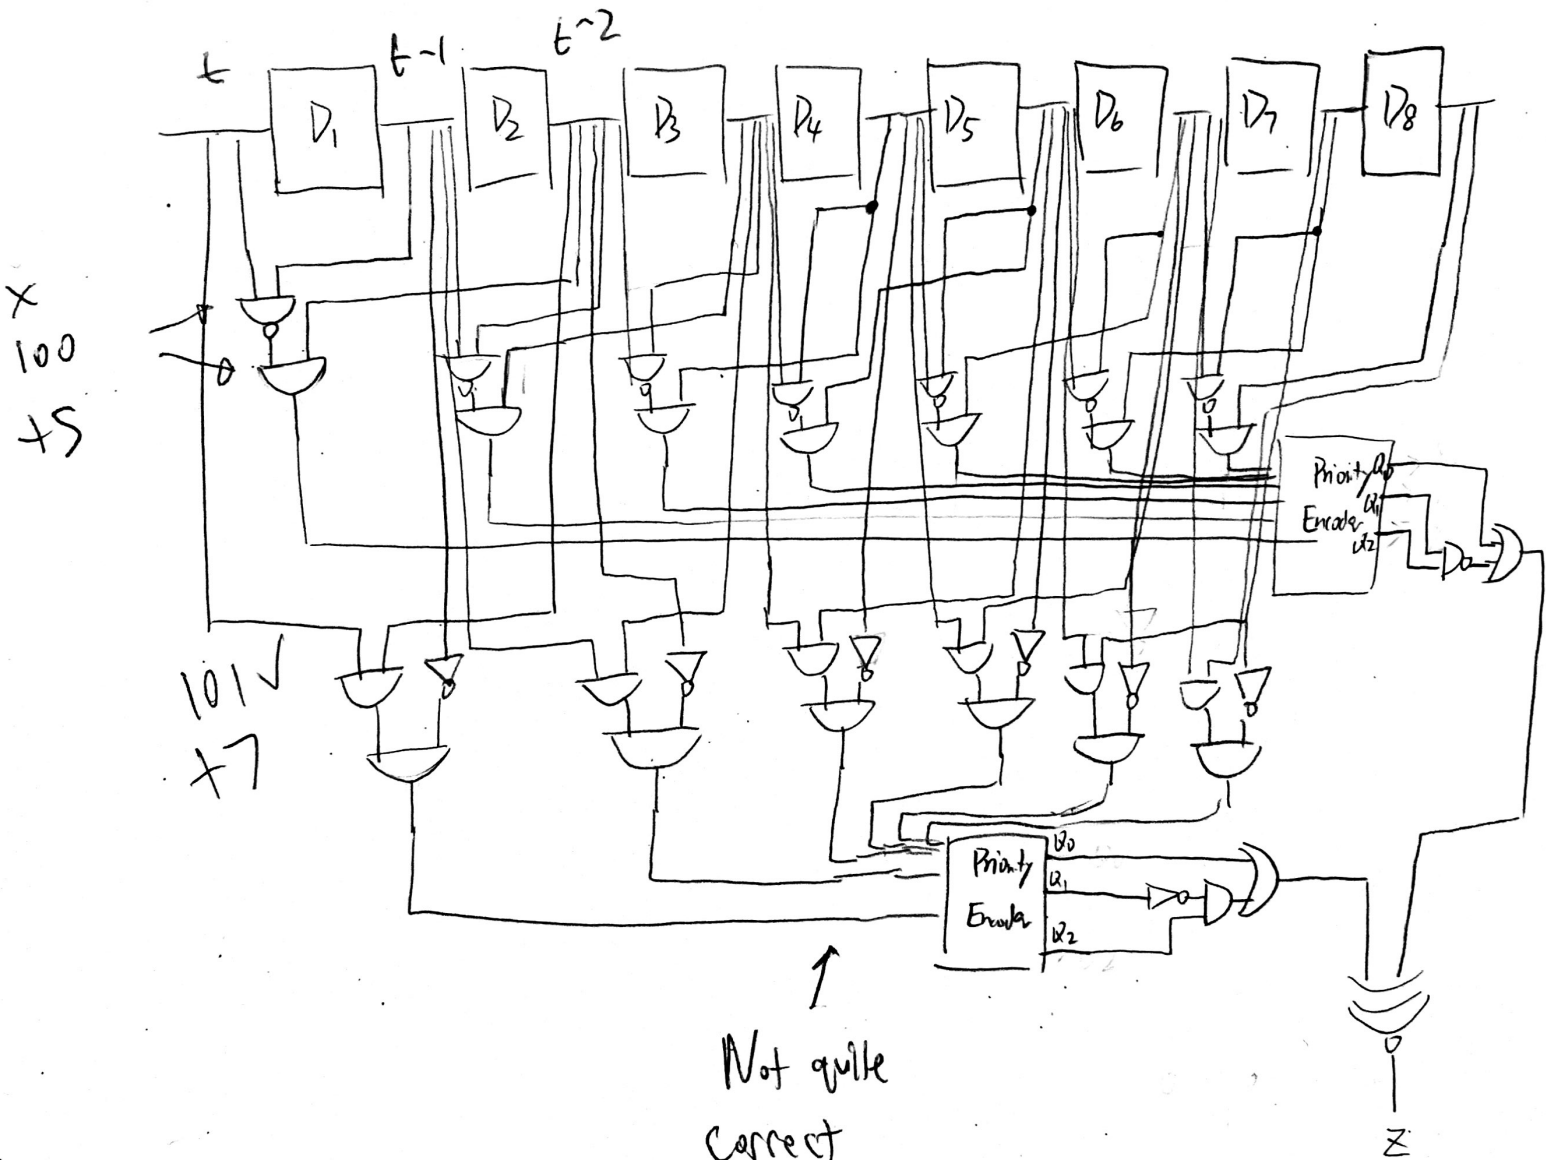 t t-1 t-2
D1 D2 D3 D4 D5 D6 D7 D8
X
100
+5
Priority Q0
Q1
Encoder
Q2
101 ✓
+7
Priority
Encoder
Q0
Q1
Q2
Not quite
correct
Z